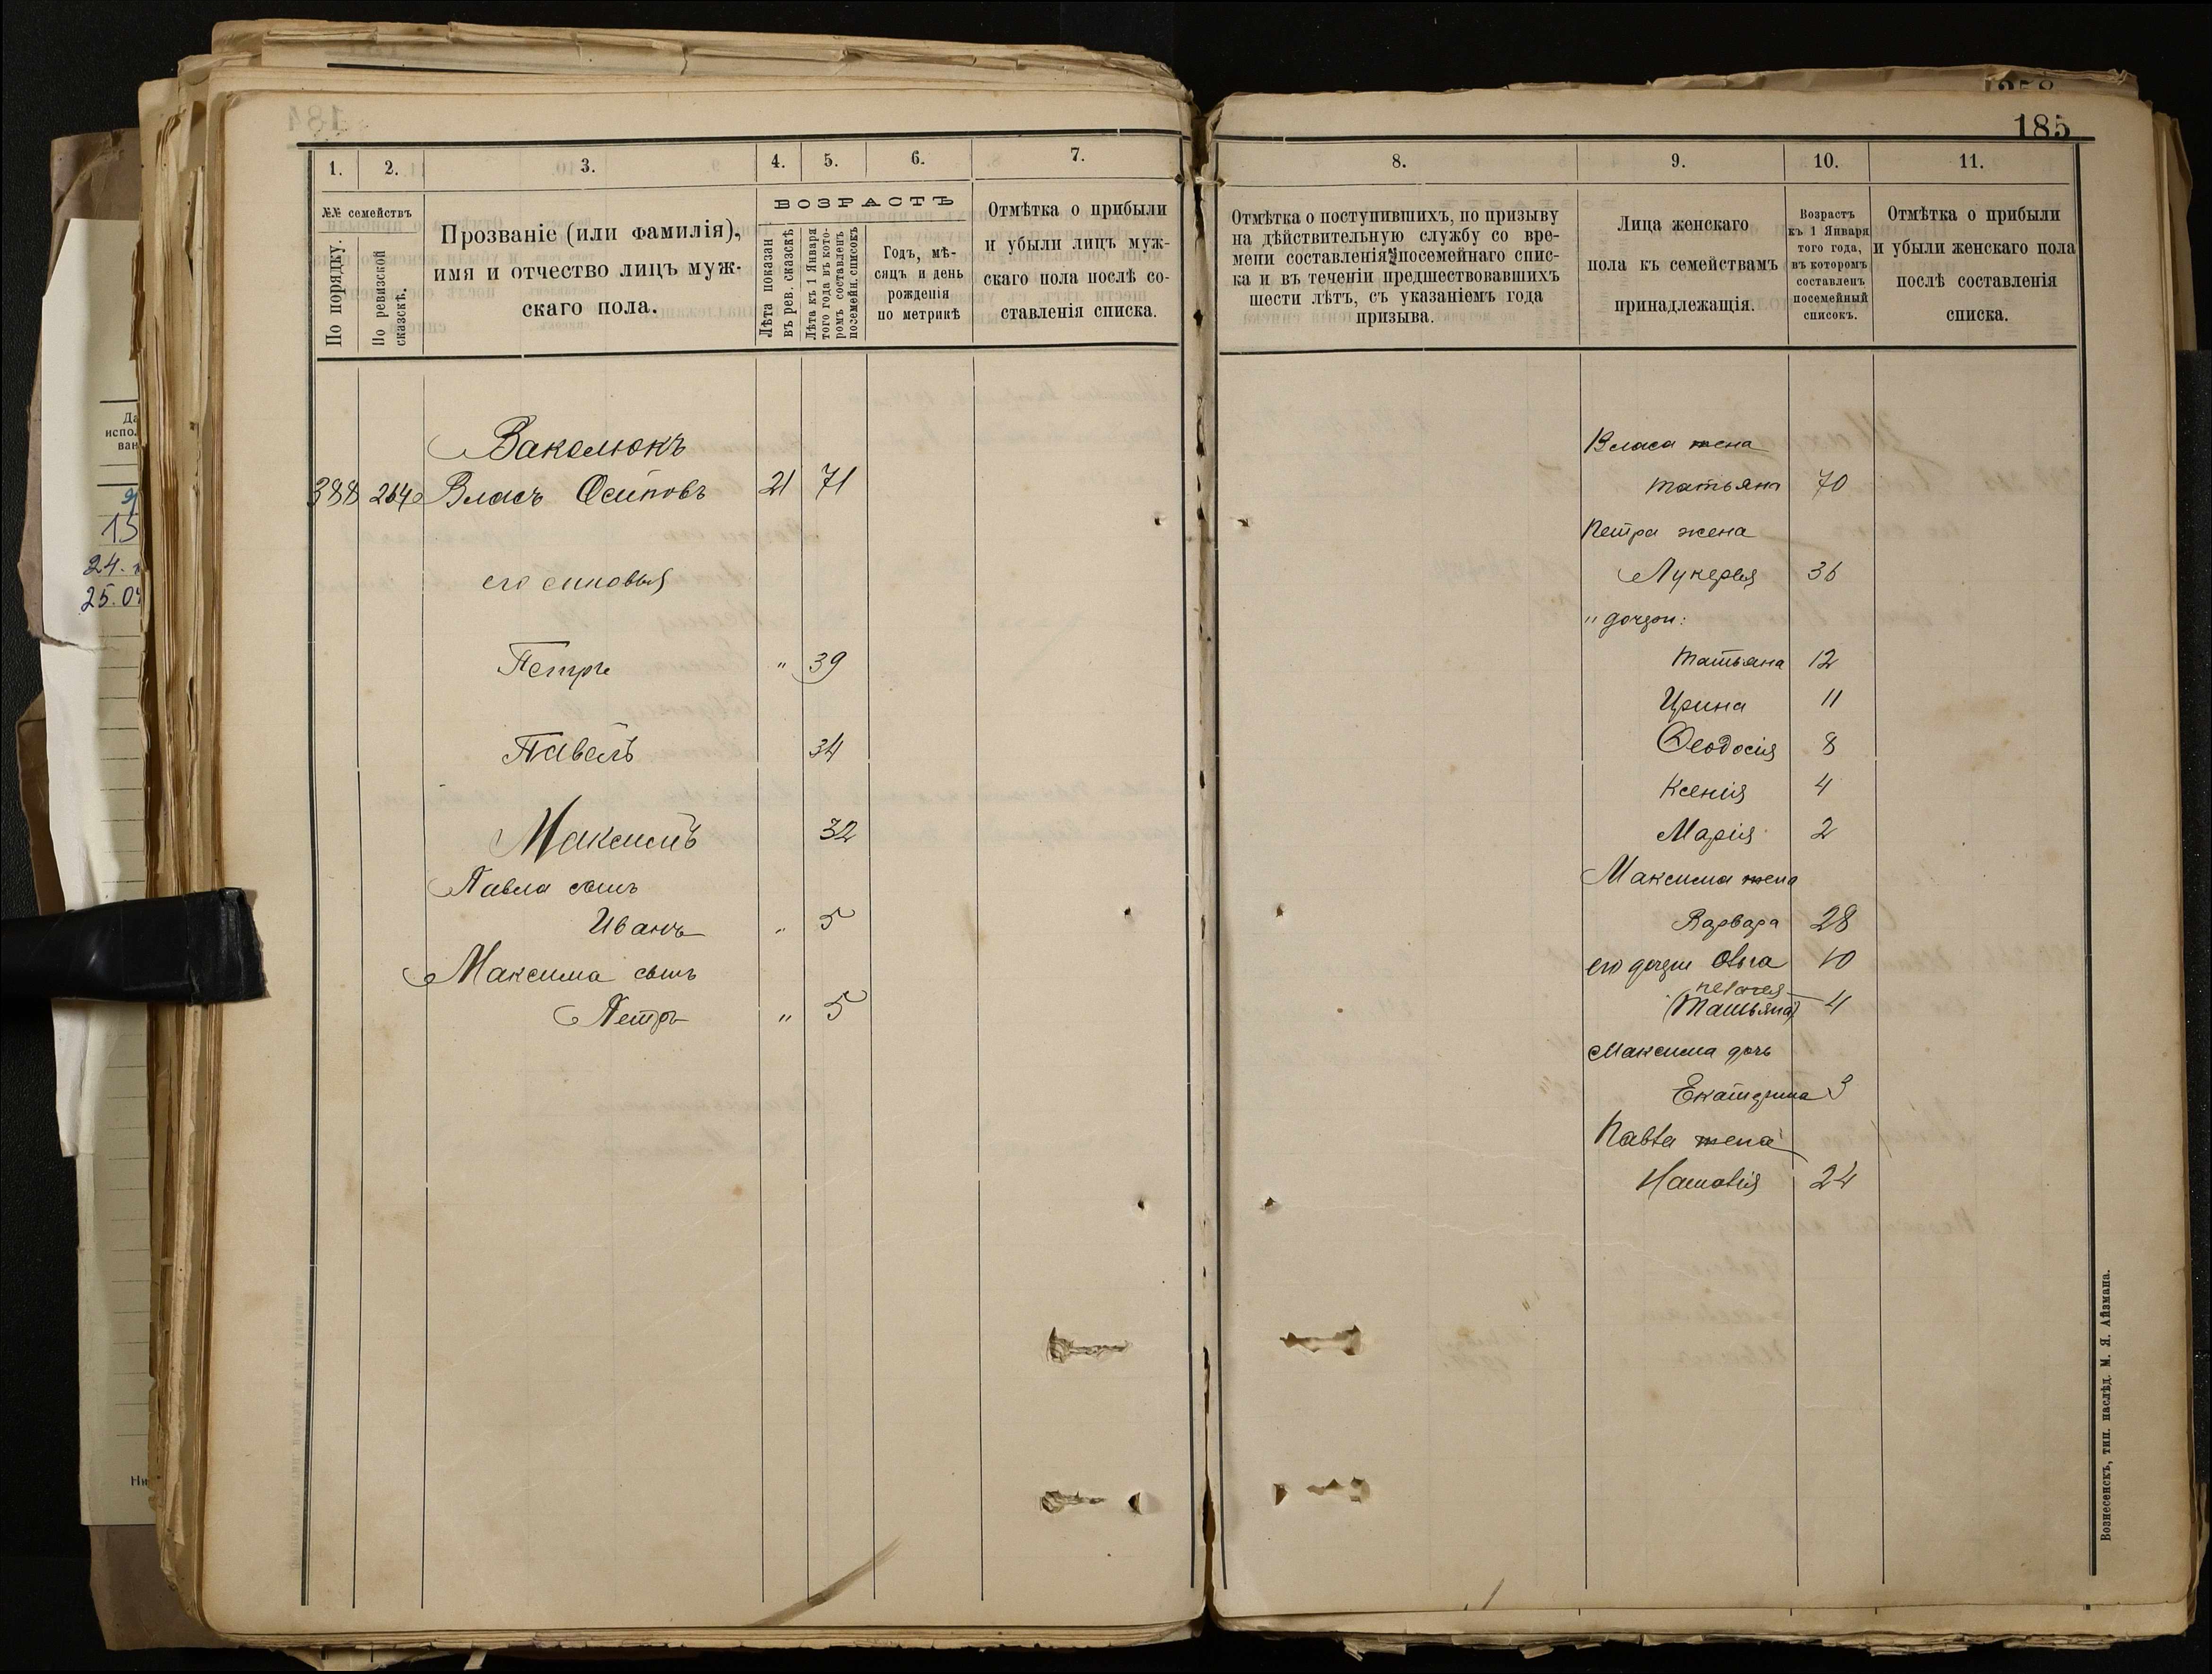 185
1. 2. 3. 4. 5. 6. 7.
№№ семействъ
По порядку.
По ревизской сказскѣ.
Прозваніе (или фамилія),
имя и отчество лицъ муж-
скаго пола.
ВОЗРАСТЪ
Лѣта показан
въ рев. сказскѣ
Лѣта къ 1 Января
того года въ кото-
ромъ составленъ
посемейн. списокъ
Годъ, мѣ-
сяцъ и день
рожденія
по метрикѣ
Отмѣтка о прибыли
и убыли лицъ муж-
скаго пола послѣ со-
ставленія списка.
Вакелюкъ
388 264 Власъ Осиповъ 21 71
его сыновья
Петръ " 39
Павелъ 34
Максимъ 32
Павла сынъ
Иванъ " 5
Максима сынъ
Петръ " 5
8. 9. 10. 11.
Отмѣтка о поступившихъ, по призыву
на дѣйствительную службу со вре-
мени составленія посемейнаго спис-
ка и въ теченіи предшествовавшихъ
шести лѣтъ, съ указаніемъ года
призыва.
Лица женскаго
пола къ семействамъ
принадлежащія.
Возрастъ
къ 1 Января
того года,
въ которомъ
составленъ
посемейный
списокъ.
Отмѣтка о прибыли
и убыли женскаго пола
послѣ составленія
списка.
Власа жена
Татьяна 70
Петра жена
Лукерья 36
" дочери:
Татьяна 12
Ирина 11
Ѳеодосія 8
Ксенія 4
Марія 2
Максима жена
Варвара 28
его дочери Ольга 10
(Татьяна) 4
Максима дочь
Екатерина 3
Павла жена
Наталія 24
Вознесенскъ, тип. наслѣд. М. Я. Айзмана.